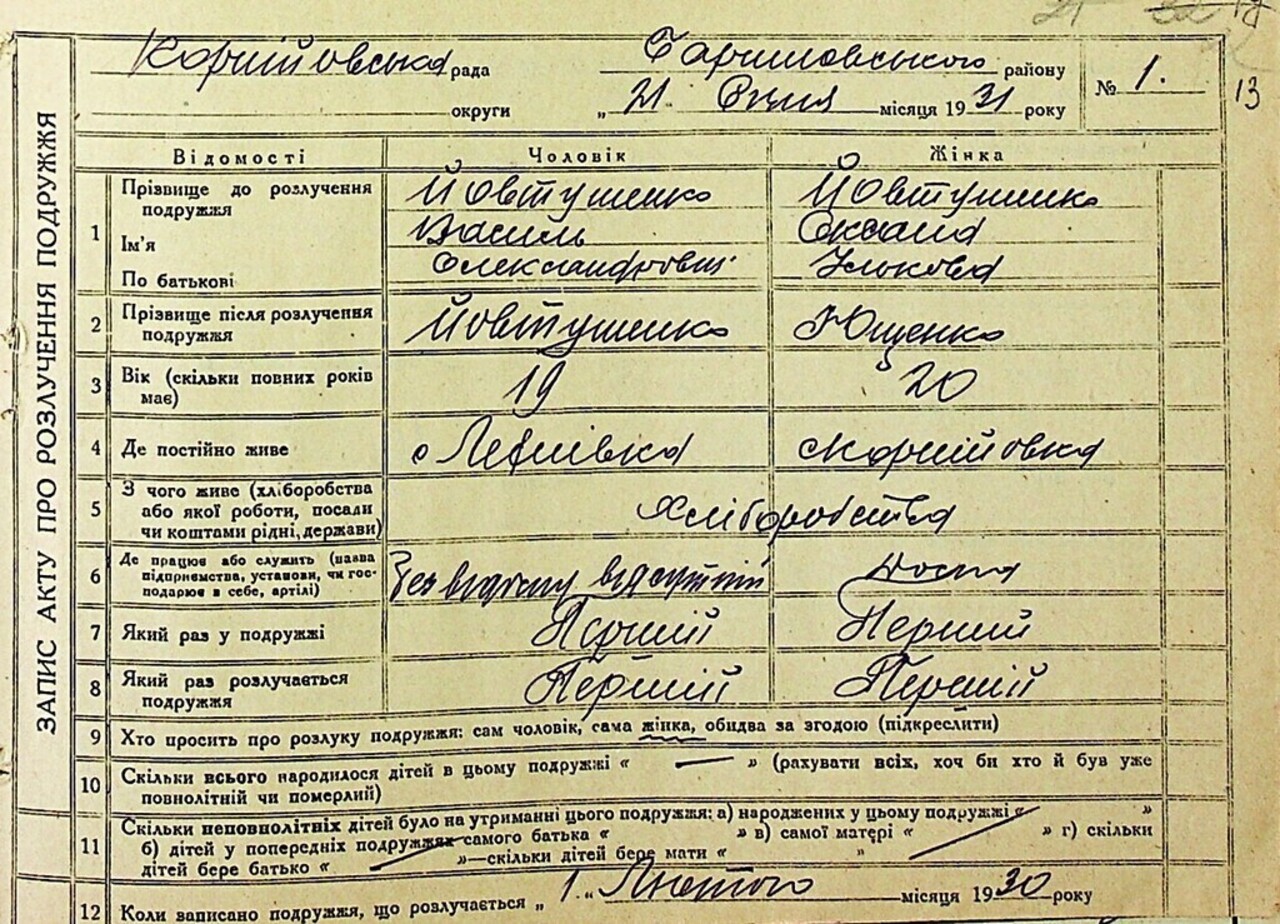 13
ЗАПИС АКТУ ПРО РОЗЛУЧЕННЯ ПОДРУЖЖЯ
Корнійовська рада Баришовського району
округи „ 21 " Січня місяця 1931 року
№ 1.
Відомості Чоловік Жінка
1 Прізвище до розлучення подружжя Йовтушенко Йовтушенко
Ім'я Василь Оксана
По батькові Олександрович Улькова
2 Прізвище після розлучення подружжя Йовтушенко Ющенко
3 Вік (скільки повних років має) 19 20
4 Де постійно живе с Лехнівка с Корнійовка
5 З чого живе (хліборобства або якої роботи, посади чи коштами рідні, держави) Хліборобства
6 Де працює або служить (назва підприємства, установи, чи господарює в себе, артілі) Без відому відсутній Дома
7 Який раз у подружжі Перший Перший
8 Який раз розлучається подружжя Перший Перший
9 Хто просить про розлуку подружжя: сам чоловік, сама жінка, обидва за згодою (підкреслити)
10 Скільки всього народилося дітей в цьому подружжі « — » (рахувати всіх, хоч би хто й був уже
повнолітній чи померлий)
11 Скільки неповнолітніх дітей було на утриманні цього подружжя: а) народжених у цьому подружжі « »
б) дітей у попередніх подружжях самого батька « » в) самої матері « » г) скільки
дітей бере батько « »—скільки дітей бере мати « "
12 Коли записано подружжя, що розлучається „ 1 " Лютого місяця 1930 року